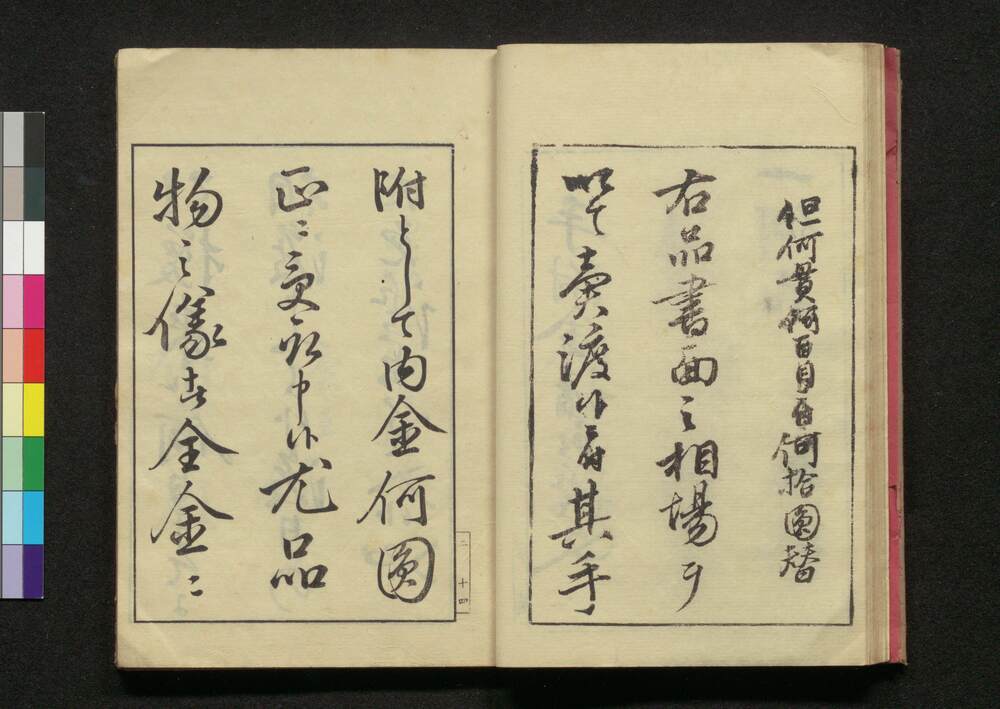 但何貫何百目ニ付何拾圓替
右品書面之相場ヲ
以て賣渡候ニ付其手
附として内金何圓
正ニ受取申候尤品
物之儀者全金ニ
二ノ十四